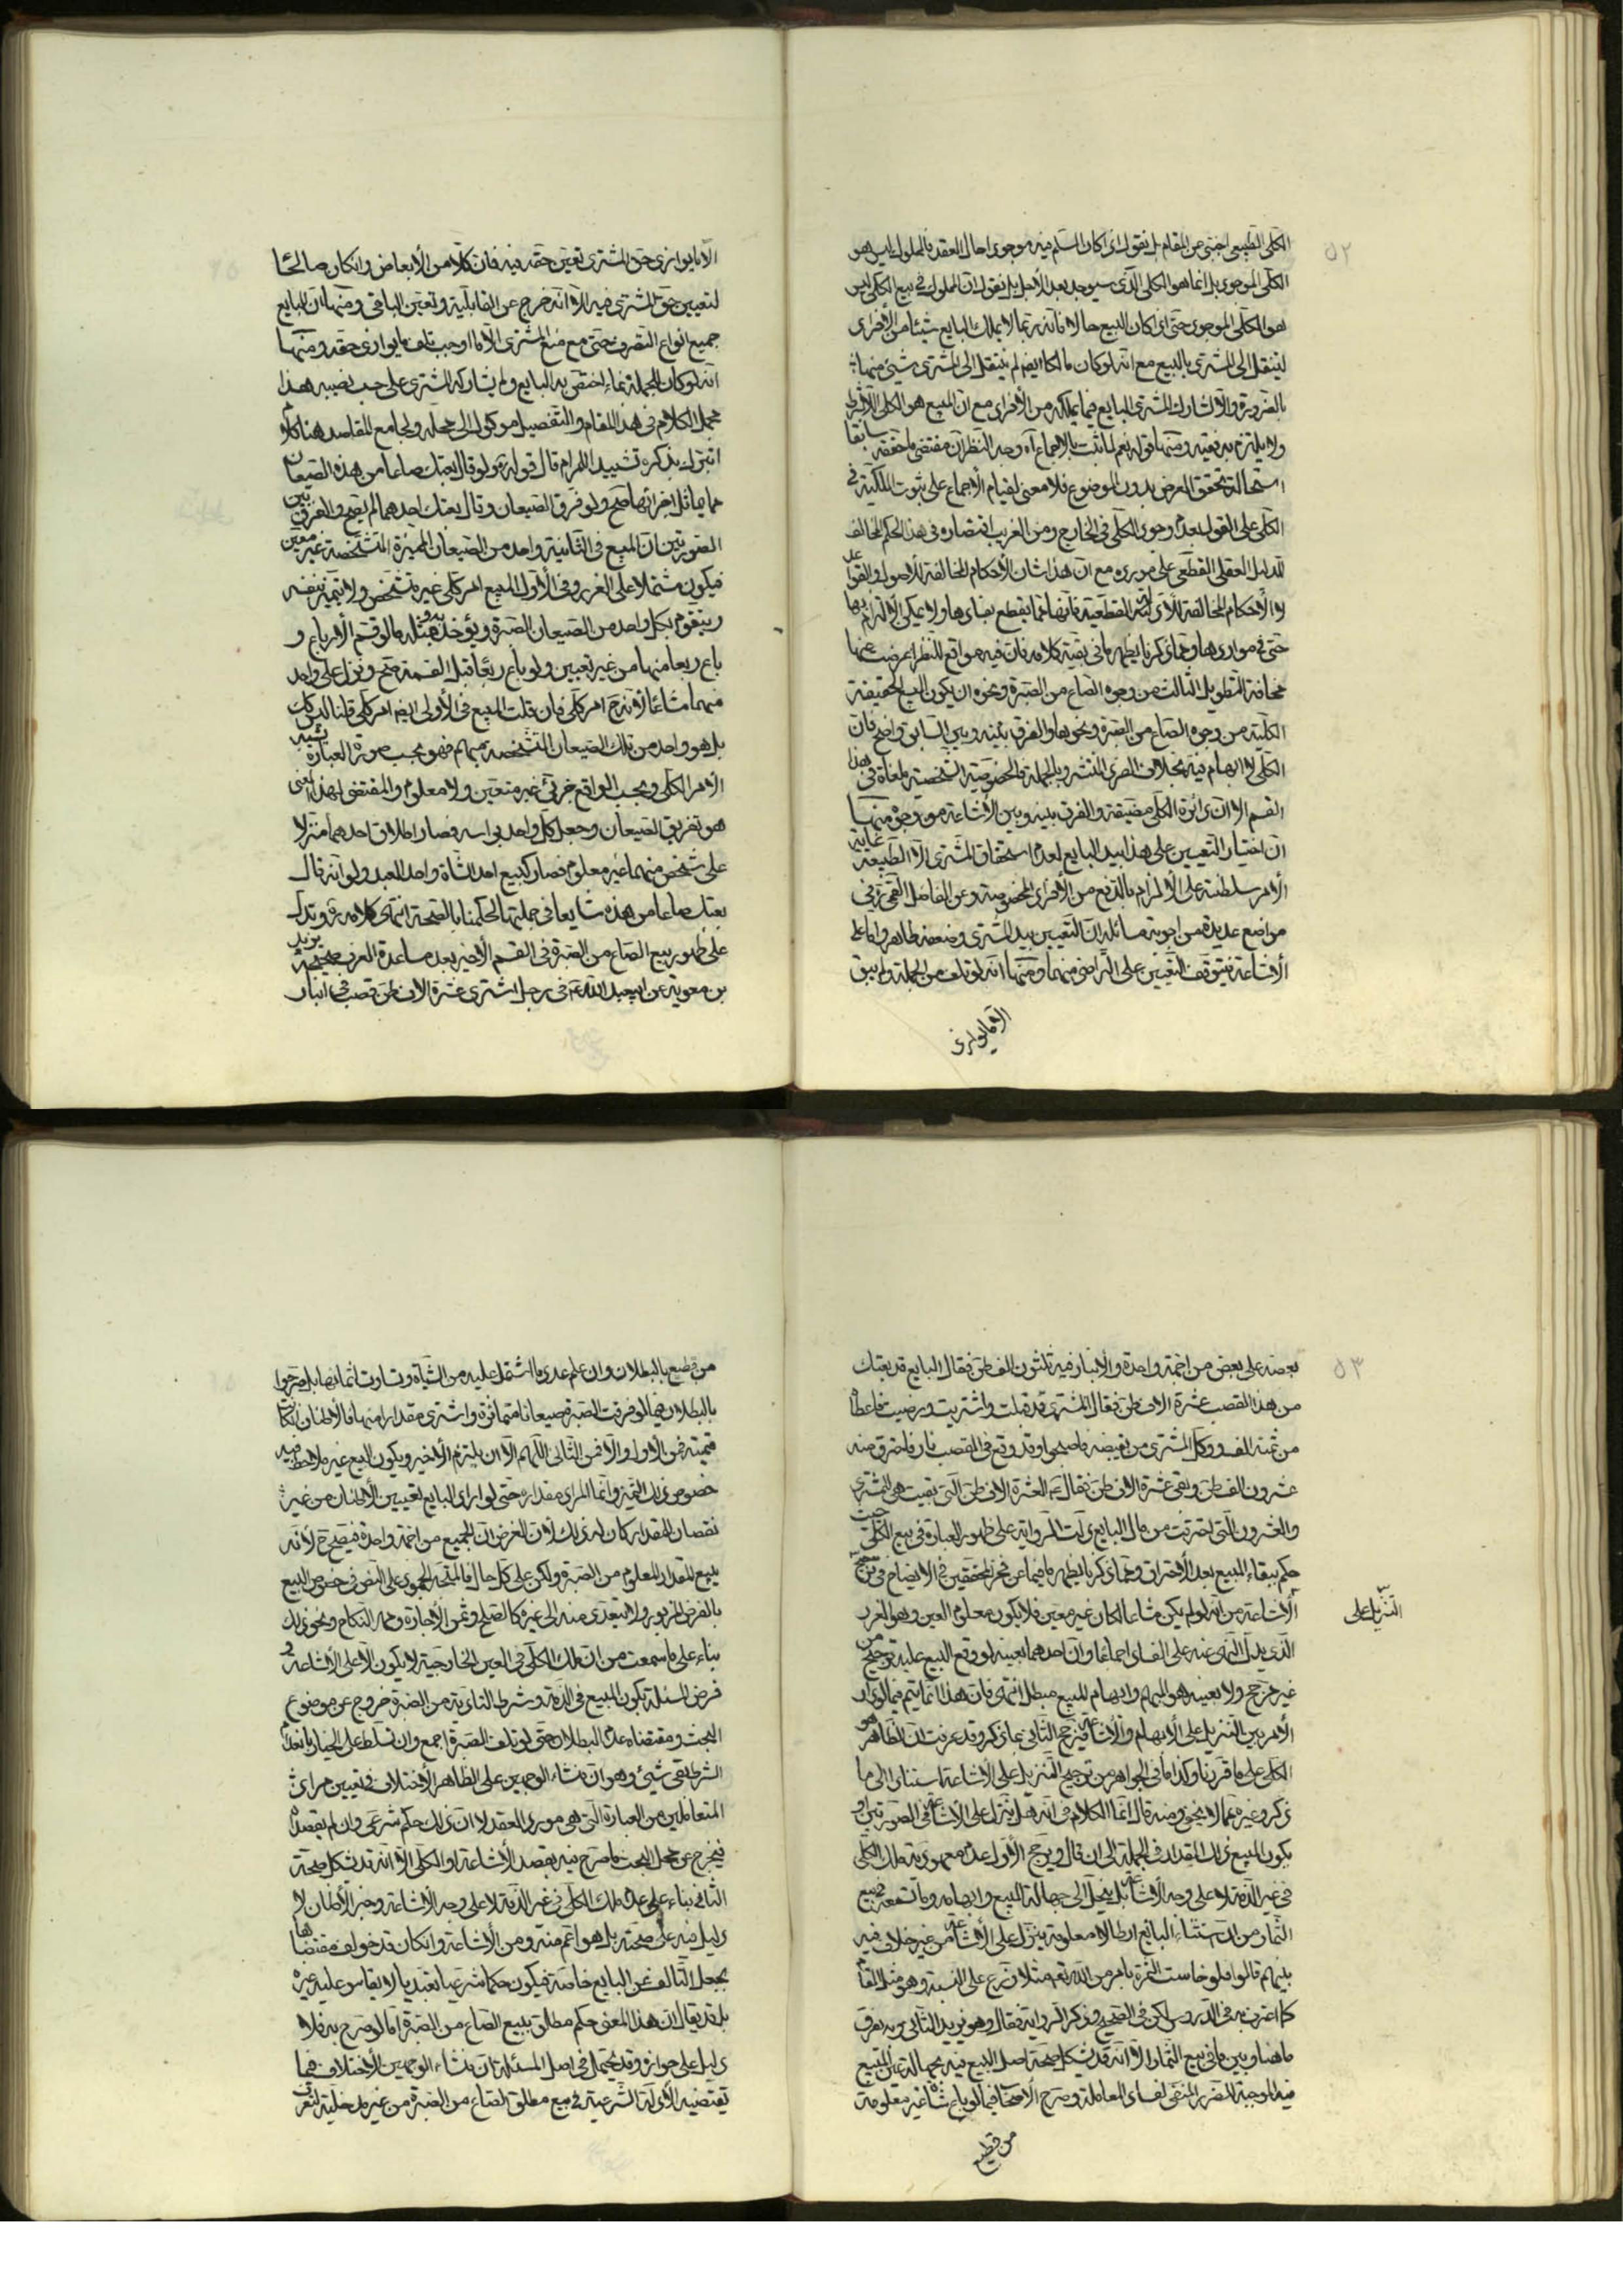 ٥٢
الكلى الطبيعى اجنبى عن المقام بل نقول اذا كان المسلم فيه موجودا حال العقد فالمملوك ليس هو
الكلى الموجود بل انما هو الكلى الذى سيوجد بعد الأجل بل نقول ان المملوك فى بيع الكلى ليس
هو الكلى الموجود حتى اذا كان البيع حالا فانه ربما لا يملك البايع شيئا من الأفراد
لينتقل الى المشترى بالبيع مع انه لو كان مالكا ايضا لم ينتقل الى المشترى شئ منها
بالضرورة والا لشارك المشترى البايع فيما يملكه من الأفراد مع ان المبيع هو الكلى لا بشرط
ولا يلتزم به فقيه ومنها قوله نعم لما ثبت بالاجماع آه وجه النظر ان مقتضى ما حققه سابقا
استحالة تحقق العرض بدون الموضوع فلا معنى لقيام الأجماع على ثبوت الملكية فى
الكلى على القول بعدم وجود الكلى فى الخارج ومن الغريب اقتصاره فى هذا الحكم المخالف
للدليل العقلى القطعى على مورده مع ان هذا شان الأحكام المخالفة للأصول والقواعد
لا الأحكام المخالفة للأدلة القطعية فانها مما يقطع بفسادها ولا يمكن الالتزام بها
حتى فى مواردها ومما ذكرنا يظهر ما فى بقية كلامه فان فيه مواقع للنظر اعرضت عنها
مخافة التطويل الثالث من وجوه الصاع من الصبرة ونحوه ان يكون المبيع الحقيقة
الكلية من وجوه الصاع من الصبرة ونحوها والفرق بينه وبين السابق واضح فان
الكلى لا ابهام فيه بخلاف الفرد المنتشر وبالجملة فالخصوصية الشخصية ملغاة فى هذا
القسم الا ان دائرة الكلى مضيقة والفرق بينه وبين الأشاعة من وجوه منها
ان اختيار التعيين على هذا بيد البايع لعدم استحقاق المشترى الا الطبيعة غاية
الأمر سلطنته على الألزام بالدفع من الأفراد المخصوصة وعن الفاضل القمى ره فى
مواضع عديدة من اجوبة مسائله ان التعيين بيد المشترى وضعفه ظاهر واما على
الأشاعة فيتوقف التعيين على التراضى منهما ومنها انه لو تلف من الجملة ولم يبق
الا ما يوازى
الا ما يوازى حق المشترى تعين حقه فيه فان كلا من الأبعاض وان كان صالحا
لتعيين حق المشترى فيه الا انه خرج عن القابلية وتعين الباقى ومنها ان للبايع
جميع انواع التصرف حتى مع منع المشترى الا ما اوجب تلف ما يوازى حقه ومنها
انه لو كان للجملة نماء اختص به البايع ولم يشاركه المشترى على حسب نصيبه هذا
مجمل الكلام فى هذا المقام والتفصيل موكول الى محله ولجامع المقاصد هنا كلام
نتبرك بذكره تشييدا للمرام قال قوله ولو قال بعتك صاعا من هذه الصيعان
مما يماثل اجزائها صح ولو فرق الصيعان وقال بعتك احدهما لم يصح والفرق بين
الصورتين ان المبيع فى الثانية واحد من الصيعان المميزة المتشخصة غير معين
فيكون مشتملا على الغرر وفى الأول المبيع امر كلى غير متشخص ولا متميز بنفسه
ويتقوم بكل واحد من الصيعان الصبرة ويوجد به ومثله ما لو قسم الأرباع و
باع ربعا منها من غير تعيين ولو باع ربعا قبل القسمة صح ونزل على واحد
منهما مشاعا لأنه ح امر كلى فان قلت المبيع فى الأولى ايضا امر كلى قلنا ليس كذلك
بل هو واحد من تلك الصيعان المتشخصة مبهم فهو بحسب صورة العبارة يشبه
الأمر الكلى وبحسب الواقع جزئى غير متعين ولا معلوم والمقتضى لهذا المعنى
هو تفريق الصيعان وجعل كل واحد براسه فصار اطلاق احدهما منزلا
على شخص منهما غير معلوم فصار كبيع احد الشاة واحد العبد ولو انه قال
بعتك صاعا من هذه شايعا فى جملتها لحكمنا بالصحة انتهى كلامه ره وتدل
على ظهور بيع الصاع من الصبرة فى القسم الأخير بعد مساعدة العرف صحيحة بريد
بن معوية عن ابيعبد الله ع فى رجل اشترى عشرة الاف طن قصب فى انبار
٥٣
بعضه على بعض من اجمة واحدة والأنبار فيه ثلثون الف طن فقال البايع قد بعتك
من هذا القصب عشرة الاف طن فقال المشترى قد قبلت واشتريت ورضيت فاعطاه
من ثمنه الف ووكل المشترى من يقبضه فاصبحوا وقد وقع فى القصب نار فاحترق منه
عشرون الف طن وبقى عشرة الاف طن فقال ع العشرة الاف طن التى بقيت هى للمشترى
والعشرون التى احترقت من مال البايع دلت الرواية على ظهور العبارة فى بيع الكلى حيث
حكم ببقاء المبيع بعد الأحتراق ومما ذكرنا يظهر ما فيما عن فخر المحققين فى الأيضاح فى ترجيح
الأشاعة من انه لو لم يكن مشاعا لكان غير معين فلا يكون معلوم العين وهو الغرر
التنزيل على
الذى يدل النهى عنه على الفساد اجماعا وان احدهما بعينه لو وقع البيع عليه ترجيح من
غير مرجح ولا بعينه هو المبهم وابهام المبيع مبطل انتهى فان هذا انما يتم فيما لو دار
الأمر بين التنزيل على الأبهام والأشاعة فيرجح الثانى بما ذكر وقد عرفت ان الظاهر هو
الكلى على ما قررنا وكذا ما فى الجواهر من ترجيح التنزيل على الأشاعة استنادا الى ما
ذكر وغيره مما لا يخفى ومنه قال انما الكلام فى انه هل ينزل على الأشاعة فى الصورتين او
يكون المبيع ذلك المقدار فى الجملة الى ان قال ويرجح الأول عدم معهودية ملك الكلى
فى غير الذمة لا على وجه الأشاعة بل ينجل الى جهالة المبيع وابهامه وما تسمعه فى بيع
الثمار من ان استثناء البايع ارطالا معلومة ينزل على الأشاعة من غير خلاف فيه
بينهم قالوا فلو خاست الثمرة بامر من الله تعه مثلا وزع على النسبة وهو مثل المقام
كما اعترف به فى الدروس لكن فى الصحيح وذكر الرواية فقال وهو يؤيد الثانى وبه يفرق
ما هنا وبين ما فى بيع الثمار الا انه قد يشكل صحة اصل البيع فيه بجهالة عين المبيع
فيه الموجبة للضرر المنفى لفساد المعاملة وصرح الاصحاب فيما لو باع شاة غير معلومة
من قطيع
من قطيع بالبطلان وان علم عدد ما اشتمل عليه من الشياة وتساوت اثمانها بل صرحوا
بالبطلان فيما لو فرقت الصبرة صيعانا متمايزة واشترى مقدارا منها فالأطنان ان كانت
قيمته فمن الأول والا فمن الثانى اللهم الا ان يلتزم الأخير ويكون البيع غير ملاحظ فيه
خصوص ذلك التميز وانما المراد مقداره حتى لو اراد البايع تعيين الأطنان من غير
نقصان المقدار كان له ذلك لأن الغرض ان الجميع من اجمة واحدة فيصح ح لأنه
بيع المقدار المعلوم من الصبرة ولكن على كل حال فالمتجه الجمود على النص فى خصوص البيع
بالفرض المزبور ولا يتعدى منه الى غيره كالصلح وثمن الأجارة ومهر النكاح ونحو ذلك
بناء على ما سمعت من ان ملك الكلى فى العين الخارجية لا يكون الا على الأشاعة و
فرض المسئلة بكون المبيع فى الذمة وشرط التادية من الصبرة خروج عن موضوع
البحث ومقتضاه عدم البطلان حتى لو تلف الصبرة اجمع وان تسلط على الخيار بانعدام
الشرط بقى شئ وهو ان منشاء الوجهين على الظاهر الأختلاف فى تعيين مراد
المتعاملين من العبارة التى هى مورد العقد لا ان ذلك حكم شرعى وان لم يقصداه
فيخرج عن محل البحث ما صرح فيه بقصد الأشاعة او الكلى الا انه قد يشكل صحة
الثانى بناء على عدم ملك الكلى فى غير الذمة لا على وجه الأشاعة وخبر الأطنان لا
دليل فيه على صحته بل هو اعم منه ومن الأشاعة وان كان قد خولف مقتضاها
بجعل التالف من البايع خاصة فيكون حكما شرعيا تعبديا لا يقاس عليه غيره
بل قد يقال ان هذا المعنى حكم مطلق بيع الصاع من الصبرة اما لو صرح به فلا
دليل على جوازه وقد يحتمل فى اصل المسئلة ان منشاء الوجهين الأختلاف فيما
تقتضيه الأدلة الشرعية فى بيع مطلق الصاع من الصبرة من غير مدخلية لتعرف